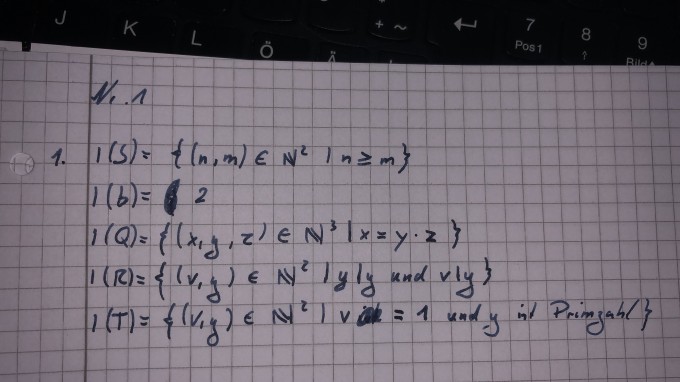 J K L Ö Ä + * ~ ↵ 7 Pos1 8 ↑ 9 Bild
Nr. 1
1. I(S) = {(n,m) ∈ ℕ² | n ≥ m}
I(b) = 2
I(Q) = {(x,y,z) ∈ ℕ³ | x = y · z}
I(R) = {(v,y) ∈ ℕ² | y|y und v|y}
I(T) = {(v,y) ∈ ℕ² | v = 1 und y ist Primzahl}